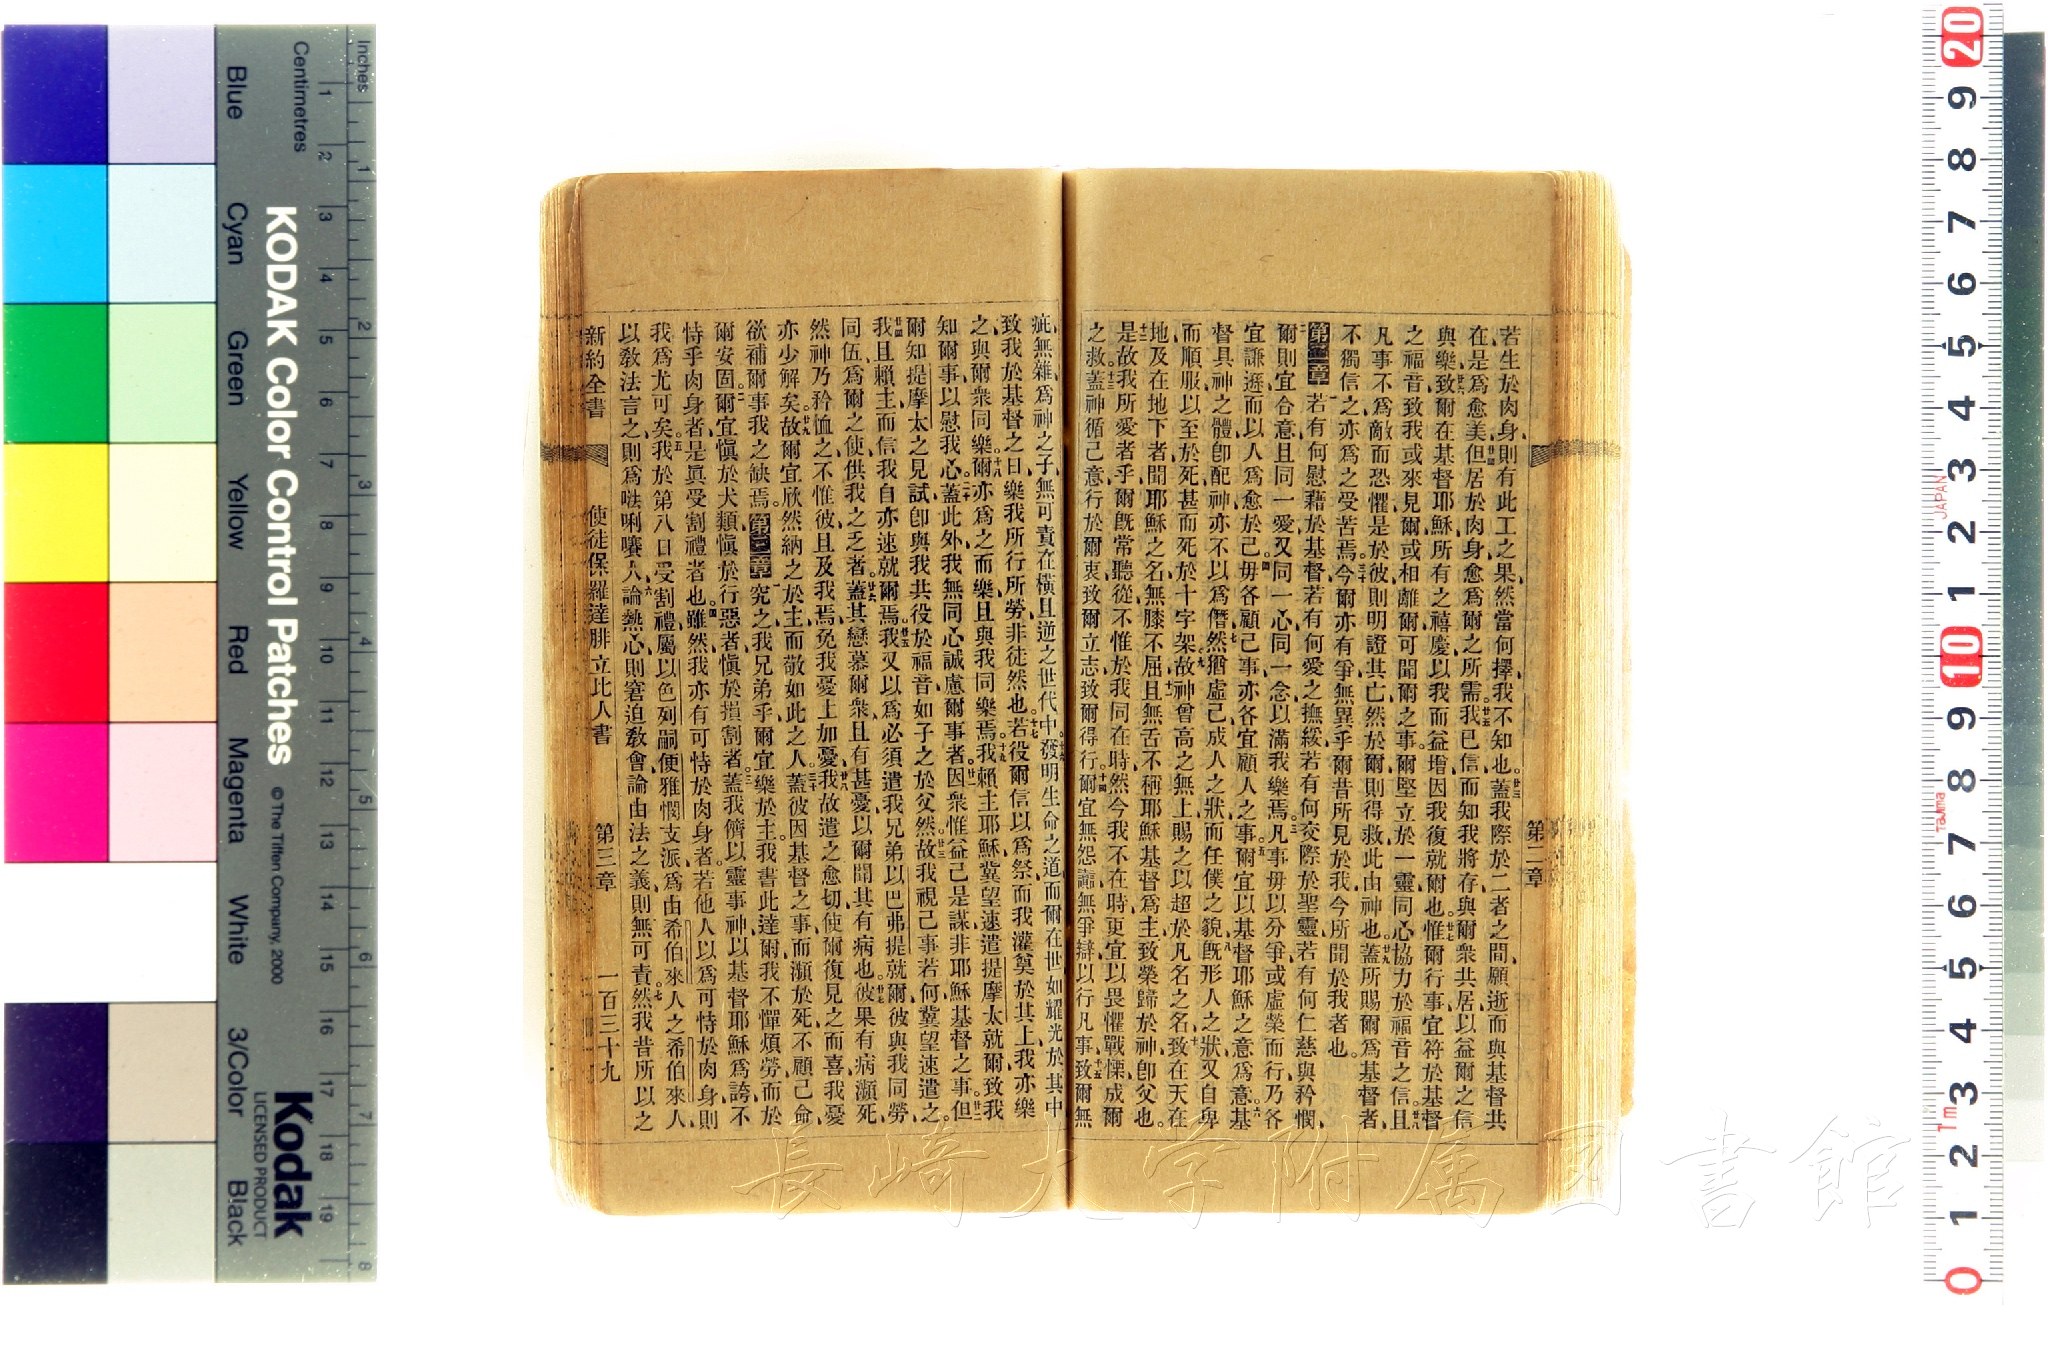 第二章
若生於肉身、則有此工之果、然當何擇、我不知也、蓋我際於二者之間、願逝而與基督共
在、是爲愈美、但居於肉身、愈爲爾之所需。我已信而知我將存、與爾衆共居、以益爾之信
與樂、致爾在基督耶穌所有之禧慶、以我而益增、因我復就爾也。惟爾行事、宜符於基督
之福音、致我或來見爾、或相離、爾可聞爾之事、爾堅立於一靈、同心協力於福音之信、且
凡事不爲敵而恐懼、是於彼則明證其亡、然於爾則得救、此由神也。蓋所賜爾爲基督者、
不獨信之、亦爲之受苦焉。今爾亦有爭、無異乎爾昔所見於我、今所聞於我者也。
第二章 若有何慰藉於基督、若有何愛之撫綏、若有何交際於聖靈、若有何仁慈與矜憫、
爾則宜合意、且同一愛、又同一心、同一念、以滿我樂焉。凡事毋以分爭或虛榮而行、乃各
宜謙遜、而以人爲愈於己。毋各顧己事、亦各宜顧人之事。爾宜以基督耶穌之意爲意、基
督具神之體、卽配神、亦不以爲僭。然猶虛己、成人之狀、而任僕之貌、旣形人之狀、又自卑
而順服、以至於死、甚而死於十字架。故神曾高之無上、賜之以超於凡名之名、致在天在
地及在地下者、聞耶穌之名、無膝不屈、且無舌不稱耶穌基督爲主、致榮歸於神卽父也。
是故我所愛者乎、爾旣常聽從、不惟於我同在時、然今我不在時、更宜以畏懼戰慄、成爾
之救。蓋神循己意、行於爾衷、致爾立志、致爾得行。爾宜無怨讟、無爭辯、以行凡事、致爾無
疵、無雜、爲神之子、無可責、在橫且逆之世代中。發明生命之道、而爾在世如耀光於其中、
致我於基督之日、樂我所行所勞、非徒然也。若役爾信以爲祭、而我灌奠於其上、我亦樂
之、與爾衆同樂。爾亦爲之而樂、且與我同樂焉。我賴主耶穌、冀望速遣提摩太就爾、致我
知爾事、以慰我心。蓋此外我無同心、誠慮爾事者。因衆惟益己是謀、非耶穌基督之事。但
爾知提摩太之見試、卽與我共役於福音、如子之於父然。故我視己事若何、冀望速遣之。
我且賴主而信我自亦速就爾焉。我又以爲必須遣我兄弟以巴弗提就爾、彼與我同勞、
同伍、爲爾之使、供我之乏者。蓋其戀慕爾衆、且有甚憂、以爾聞其有病也。彼果有病瀕死、
然神乃矜恤之、不惟彼、且及我焉、免我憂上加憂。我故遣之愈切、使爾復見之而喜、我憂
亦少解矣。故爾宜欣然納之於主、而敬如此之人。蓋彼因基督之事、而瀕於死、不顧己命、
欲補爾事我之缺焉。第三章 究之、我兄弟乎、爾宜樂於主、我書此達爾、我不憚煩勞、而於
爾安固。爾宜愼於犬類、愼於行惡者、愼於損割者。蓋我儕以靈事神、以基督耶穌爲誇、不
恃乎肉身者、是眞受割禮者也。雖然、我亦有可恃於肉身者、若他人以爲可恃於肉身、則
我爲尤可矣。我於第八日受割禮、屬以色列嗣、便雅憫支派、爲由希伯來人之希伯來人、
以敎法言之、則爲𠵽唎㘔人、論熱心、則窘迫敎會、論由法之義、則無可責。然我昔所以之
新約全書
使徒保羅達腓立比人書
第三章
一百三十九
長崎大学附属図書館
KODAK Color Control Patches
© The Tiffen Company, 2000
Kodak
LICENSED PRODUCT
Inches
Centimetres
Blue
Cyan
Green
Yellow
Red
Magenta
White
3/Color
Black
1 2 3 4 5 6 7 8 9 10 11 12 13 14 15 16 17 18 19
1 2 3 4 5 6 7 8
20 9 8 7 6 5 4 3 2 1 10 9 8 7 6 5 4 3 2 1 0
JAPAN
Tajima
Tm